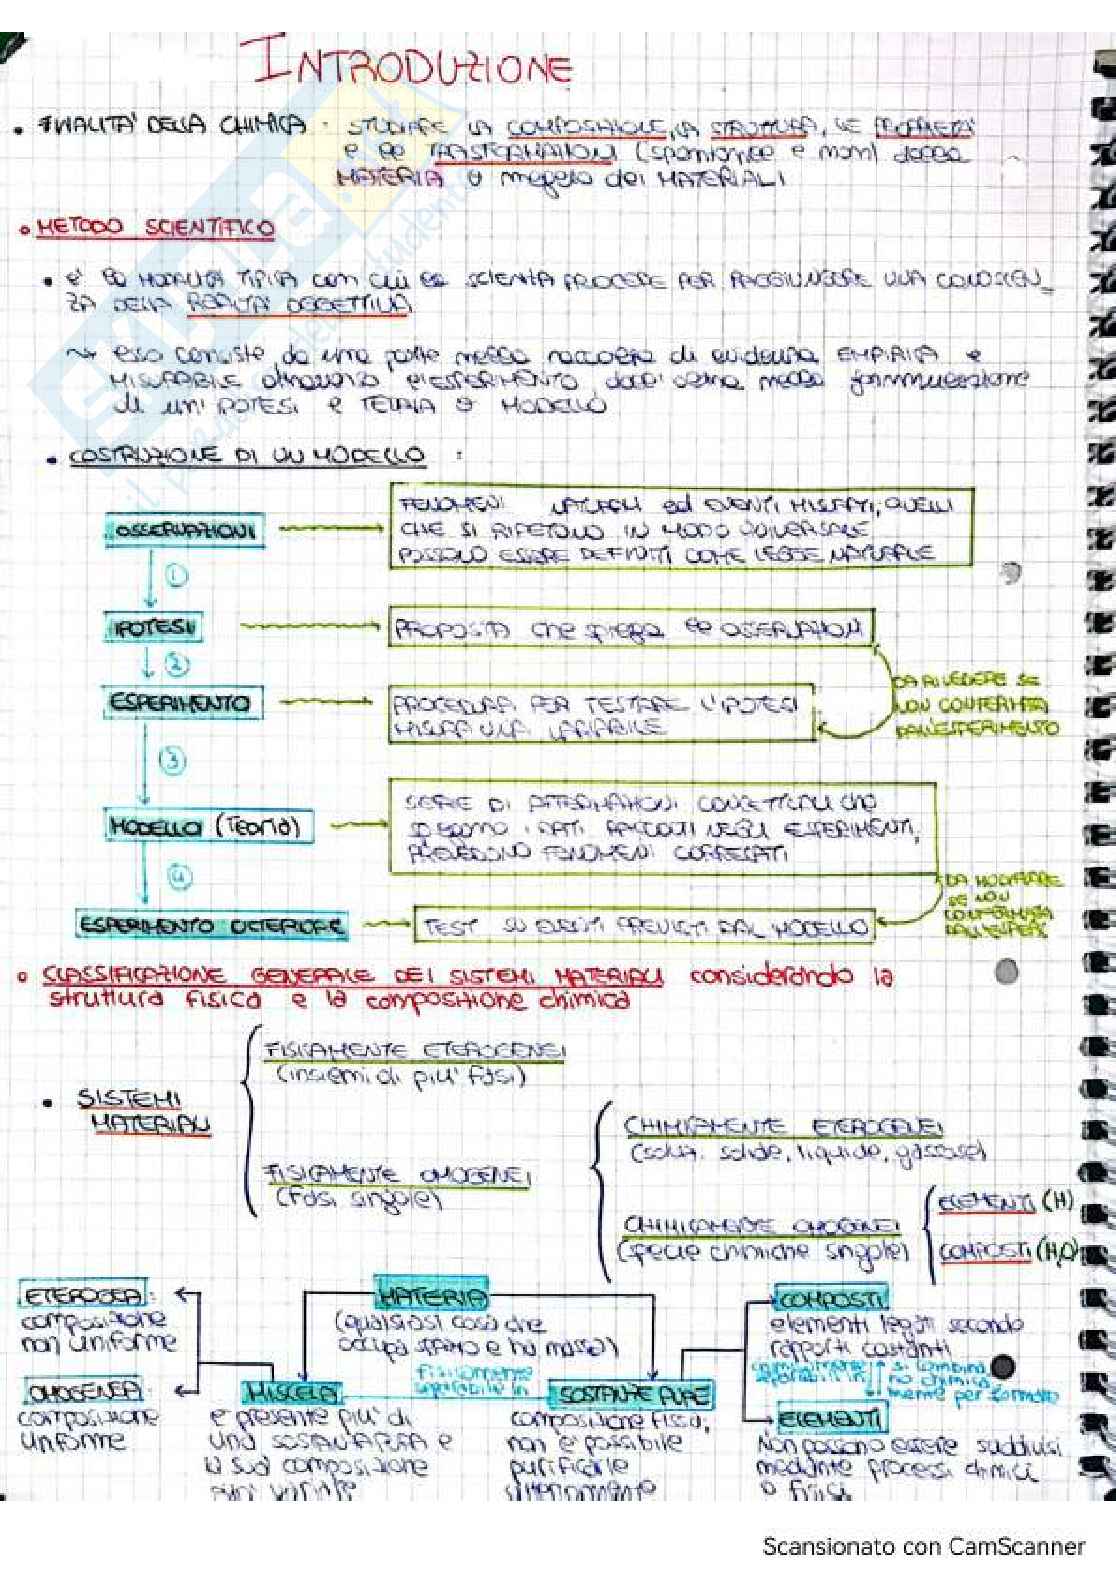 INTRODUZIONE
• FINALITA' DELLA CHIMICA : STUDIARE LA COMPOSIZIONE, LA STRUTTURA, LE PROPRIETÀ
e le TRASFORMAZIONI (spontanee e non) della
MATERIA o meglio dei MATERIALI
• METODO SCIENTIFICO
• è la MODALITÀ TIPICA con cui la SCIENZA PROCEDE PER RAGGIUNGERE UNA CONOSCEN_
ZA DELLA REALTÀ OGGETTIVA
essa consiste, da una parte nella raccolta di evidenza EMPIRICA e
MISURABILE attraverso l'ESPERIMENTO, dall'altra nella formulazione
di un' IPOTESI e TEORIA o MODELLO
• COSTRUZIONE DI UN MODELLO :
OSSERVAZIONI
FENOMENI NATURALI ed EVENTI MISURATI; QUELLI
CHE SI RIPETONO IN MODO UNIVERSALE
POSSONO ESSERE DEFINITI COME LEGGE NATURALE
1
IPOTESI
PROPOSTA che spiega le OSSERVAZIONI
2
ESPERIMENTO
PROCEDURA PER TESTARE L'IPOTESI
MISURA UNA VARIABILE
DA RIVEDERE SE
NON CONFERMATA
DALL'ESPERIMENTO
3
MODELLO (TEORIA)
SERIE DI AFFERMAZIONI CONCETTUALI che
spiegano i DATI RACCOLTI NEGLI ESPERIMENTI,
PREVEDONO FENOMENI CORRELATI
4
DA MODIFICARE
SE NON
CONFERMATA
ESPERIMENTO ULTERIORE
TEST SU EVENTI PREVISTI DAL MODELLO
• CLASSIFICAZIONE GENERALE DEI SISTEMI MATERIALI considerando la
struttura fisica e la composizione chimica
• SISTEMI
MATERIALI
FISICAMENTE ETEROGENEI
(insiemi di piu' fasi)
FISICAMENTE OMOGENEI
(fasi singole)
CHIMICAMENTE ETEROGENEI
(soluz. solide, liquide, gassose)
CHIMICAMENTE OMOGENEI
(specie chimiche singole)
ELEMENTI (H)
COMPOSTI (H₂O)
ETEROGEA:
composizione
non uniforme
OMOGENEA:
composizione
uniforme
MATERIA
(qualsiasi cosa che
occupa spazio e ha massa)
MISCELA
e presente piu' di
una sostanza pura e
la sua composizione
puoi variare
fisicamente
separabile in
SOSTANZE PURE
composizione fissa,
non e' possibile
purificarle
ulteriormente
COMPOSTI
elementi legati secondo
rapporti costanti
chimicamente
separabili in
si combina
no chimica
mente per formare
ELEMENTI
Non possono essere suddivisi
mediante processi chimici
o fisici
Scansionato con CamScanner